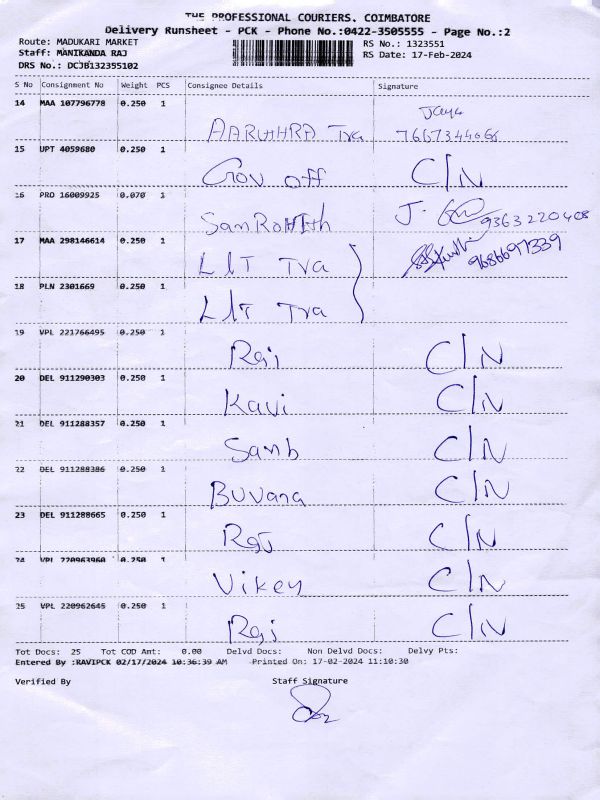 THE PROFESSIONAL COURIERS. COIMBATORE
Delivery Runsheet - PCK - Phone No.:0422-3505555 - Page No.:2
Route: MADUKARI MARKET
Staff: MANIKANDA RAJ
DRS No.: DCJB132355102
RS No.: 1323551
RS Date: 17-Feb-2024
S No Consignment No Weight PCS Consignee Details Signature
14 MAA 107796778 0.250 1
Jaya
AARUTHRA Tva 7667344066
15 UPT 4059680 0.250 1
Gov off C/N
16 PRO 16009925 0.070 1
SanRoHith J. 9363220408
17 MAA 298146614 0.250 1
LIT Tva 9686697339
18 PLN 2301669 0.250 1
LIT Tva
19 VPL 221766495 0.250 1
Raj C/N
20 DEL 911290303 0.250 1
Kavi C/N
21 DEL 911288357 0.250 1
Samb C/N
22 DEL 911288386 0.250 1
Buvana C/N
23 DEL 911288665 0.250 1
Raj C/N
24 VPL 220963960 0.250 1
Vikey C/N
25 VPL 220962645 0.250 1
Raj C/N
Tot Docs: 25 Tot COD Amt: 0.00 Delvd Docs: Non Delvd Docs: Delvy Pts:
Entered By :RAVIPCK 02/17/2024 10:36:39 AM Printed On: 17-02-2024 11:10:30
Verified By Staff Signature